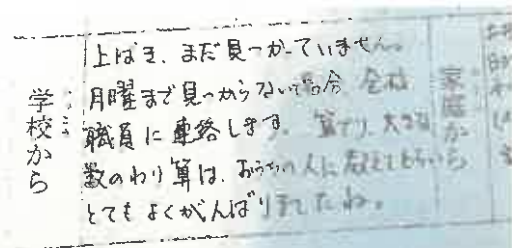 学校から
上ばき、まだ見つかっていません。
月曜まで見つからない場合 全校
職員に連絡します。算でり、大きな
数のわり算は、おうちの人に教えてもらいながら
とてもよくがんばりましたね。
家庭から